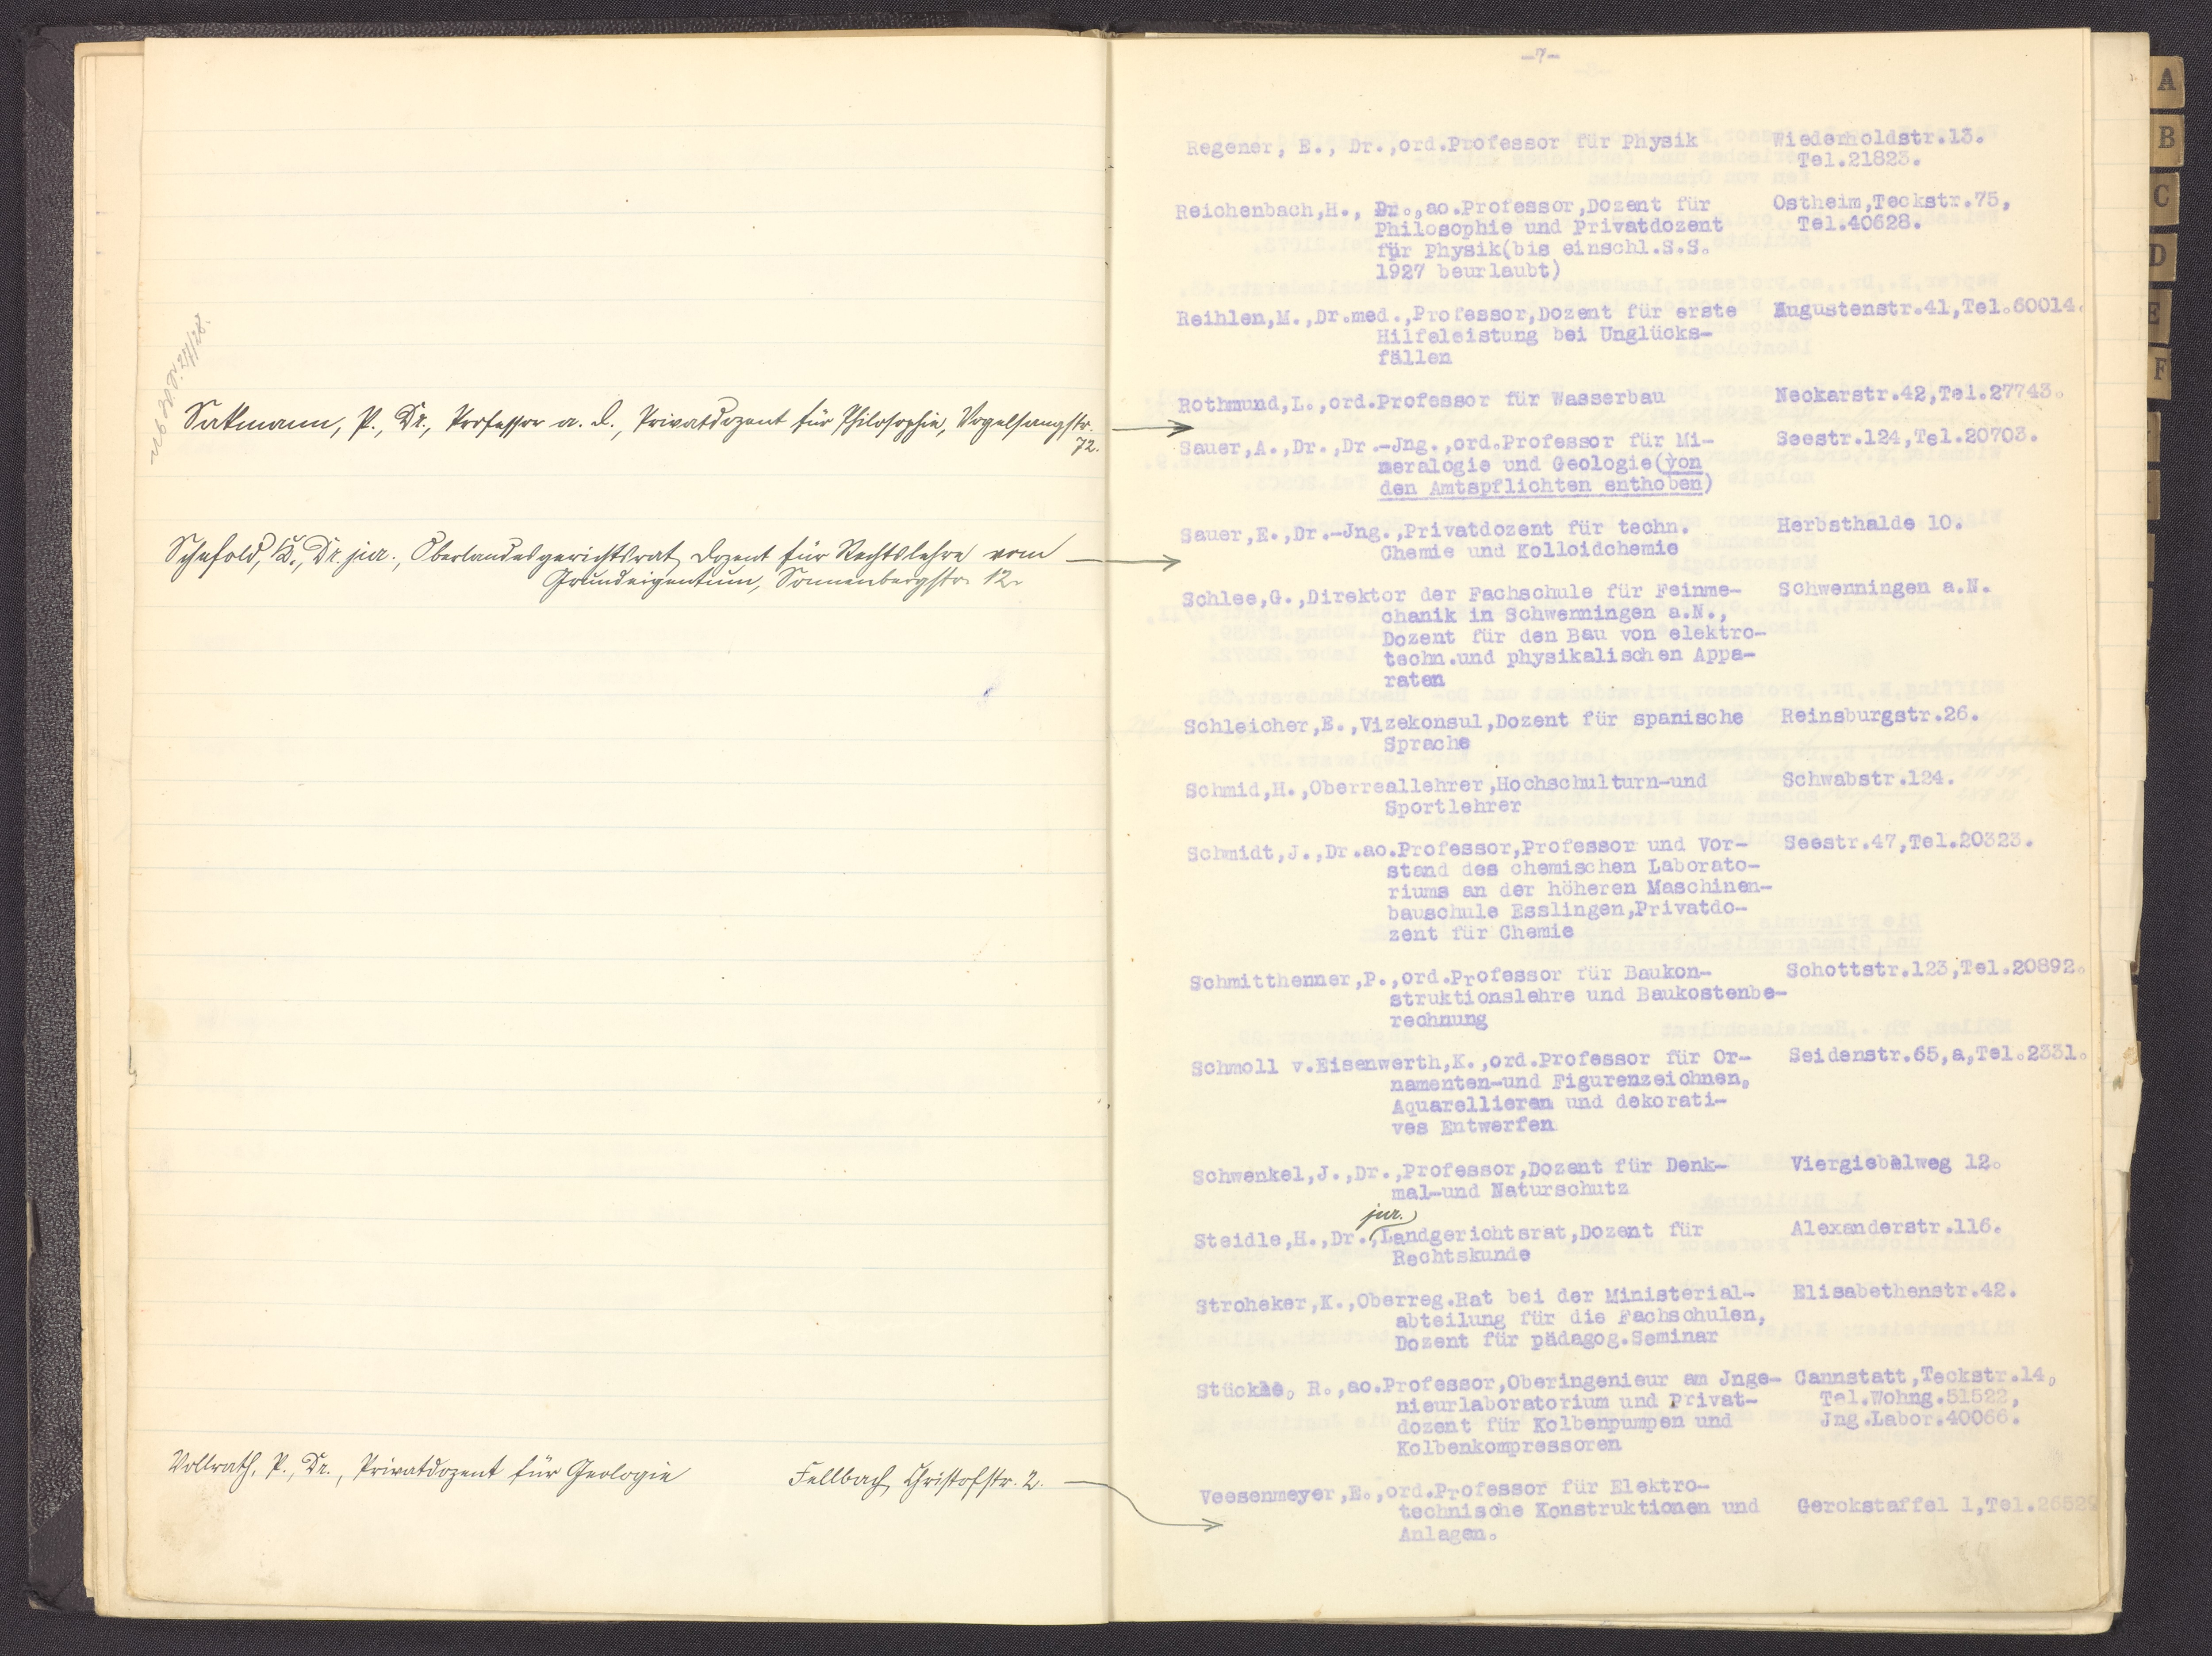 Sakmann, P., Dr., Professor a. D., Privatdozent für Philosophie, Vogelsangstr.
72.
Schefold, K., Dr. jur., Oberlandesgerichtsrat, Dozent für Rechtslehre vom
Grundeigentum, Sonnenbergstr. 12.
Vollrath, P., Dr., Privatdozent für Geologie Fellbach, Christofstr. 2.
-7-
Regener, E., Dr.,ord.Professor für Physik Wiederholdstr.13.
Tel.21823.
Reichenbach,H., Dr.,ao.Professor,Dozent für Ostheim,Teckstr.75,
Philosophie und Privatdozent Tel.40628.
für Physik(bis einschl.S.S.
1927 beurlaubt)
Reihlen,M.,Dr.med.,Professor,Dozent für erste Augustenstr.41,Tel.60014.
Hilfeleistung bei Unglücks-
fällen
Rothmund,L.,ord.Professor für Wasserbau Neckarstr.42,Tel.27743.
Sauer,A.,Dr.,Dr.-Jng.,ord.Professor für Mi- Seestr.124,Tel.20703.
neralogie und Geologie(von
den Amtspflichten enthoben)
Sauer,E.,Dr.-Jng.,Privatdozent für techn. Herbsthalde 10.
Chemie und Kolloidchemie
Schlee,G.,Direktor der Fachschule für Feinme- Schwenningen a.N.
chanik in Schwenningen a.N.,
Dozent für den Bau von elektro-
techn.und physikalischen Appa-
raten
Schleicher,E.,Vizekonsul,Dozent für spanische Reinsburgstr.26.
Sprache
Schmid,H.,Oberreallehrer,Hochschulturn-und Schwabstr.124.
Sportlehrer
Schmidt,J.,Dr.ao.Professor,Professor und Vor- Seestr.47,Tel.20323.
stand des chemischen Laborato-
riums an der höheren Maschinen-
bauschule Esslingen,Privatdo-
zent für Chemie
Schmitthenner,P.,ord.Professor für Baukon- Schottstr.123,Tel.20892.
struktionslehre und Baukostenbe-
rechnung
Schmoll v.Eisenwerth,K.,ord.Professor für Or- Seidenstr.65,a,Tel.2331.
namenten-und Figurenzeichnen,
Aquarellieren und dekorati-
ves Entwerfen
Schwenkel,J.,Dr.,Professor,Dozent für Denk- Viergiebelweg 12.
mal-und Naturschutz
jur.
Steidle,H.,Dr.,Landgerichtsrat,Dozent für Alexanderstr.116.
Rechtskunde
Stroheker,K.,Oberreg.Rat bei der Ministerial- Elisabethenstr.42.
abteilung für die Fachschulen,
Dozent für pädagog.Seminar
Stückle, R.,ao.Professor,Oberingenieur am Jnge- Cannstatt,Teckstr.14,
nieurlaboratorium und Privat- Tel.Wohng.51522,
dozent für Kolbenpumpen und Jng.Labor.40066.
Kolbenkompressoren
Veesenmeyer,E.,ord.Professor für Elektro-
technische Konstruktionen und Gerokstaffel 1,Tel.26529
Anlagen.
A
B
C
D
E
F